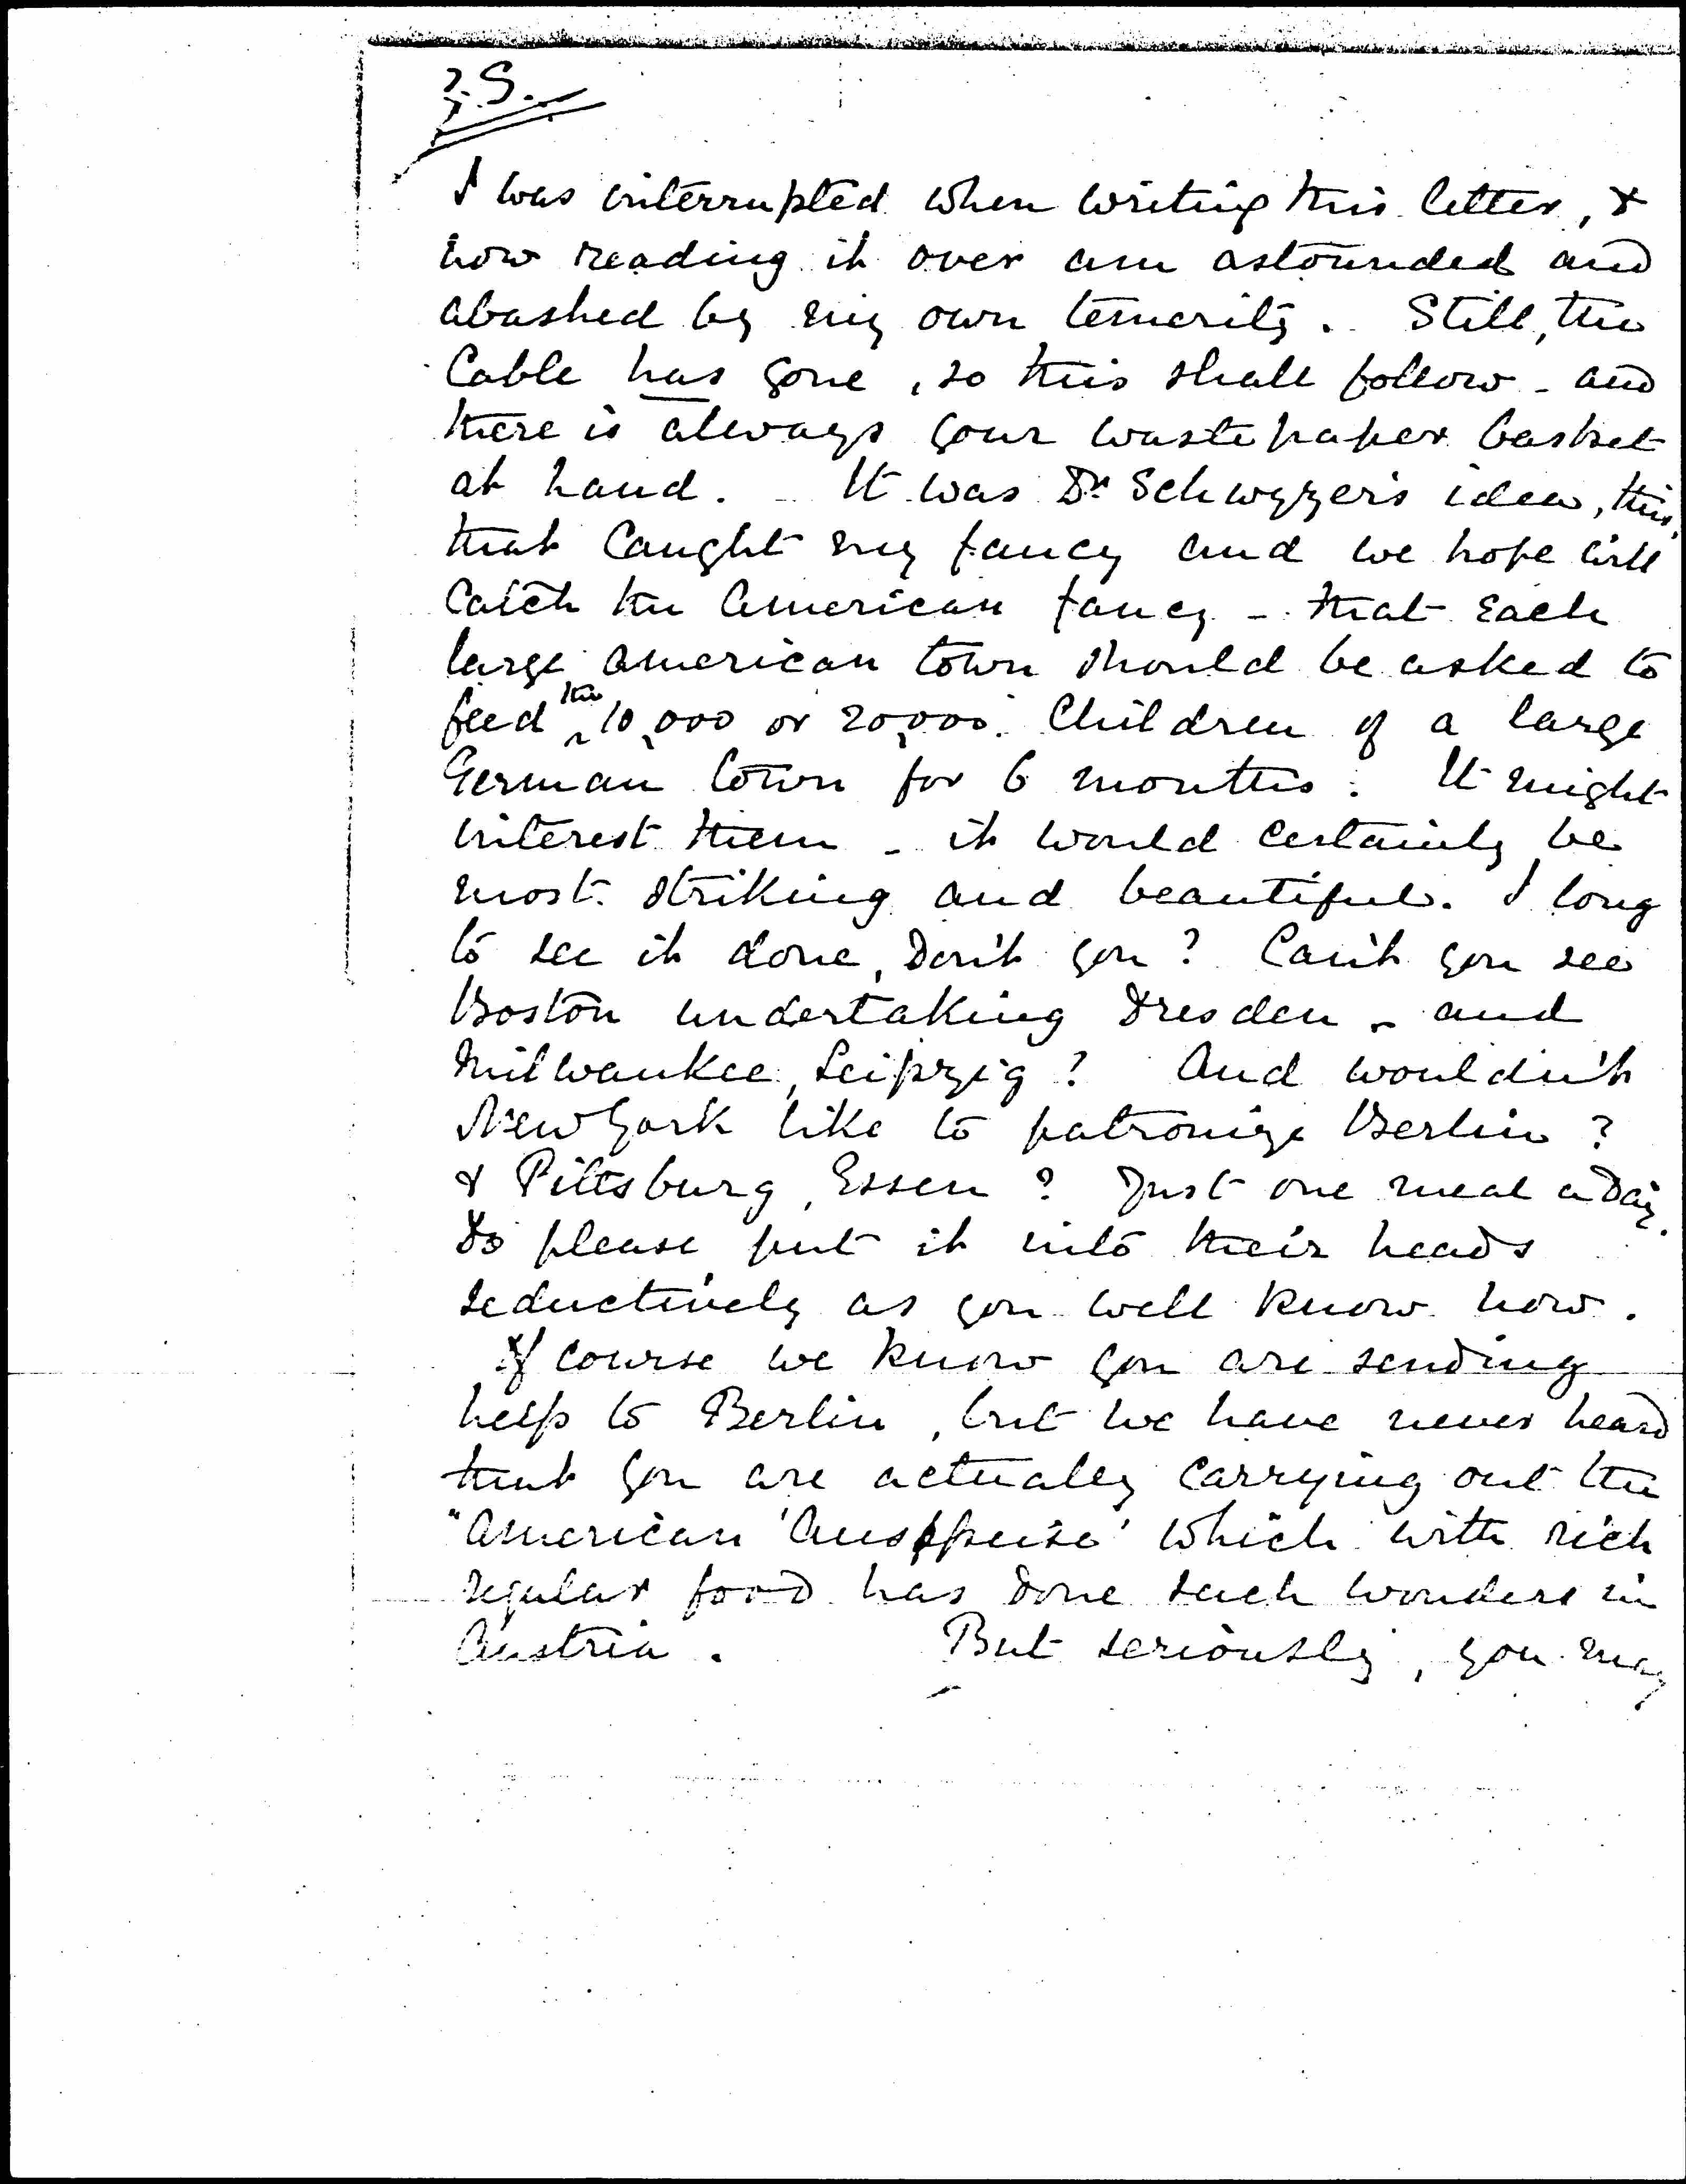 P.S.
I was interrupted when writing this letter, &
now reading it over am astounded and
abashed by my own temerity. Still, the
Cable has gone, so this shall follow - and
there is always your wastepaper basket
at hand. - It was Dr Schwyzer's idea, this,
that caught my fancy and we hope will
catch the American fancy - that each
large American town should be asked to
feed the 10,000 or 20,000 children of a large
German town for 6 months. It might
interest them - it would certainly be
most striking and beautiful. I long
to see it done, Don't you? Can't you see
Boston undertaking Dresden - and
Milwaukee, Leipzig? And wouldn't
New York like to patronize Berlin?
& Pittsburg, Essen? Just one meal a day.
Do please put it into their heads
seductively as you well know how.
Of course we know you are sending
help to Berlin, but we have never heard
that you are actually carrying out the
"American 'Ausspeise' which with rich
regular food has done such wonders in
Austria. But seriously, you may